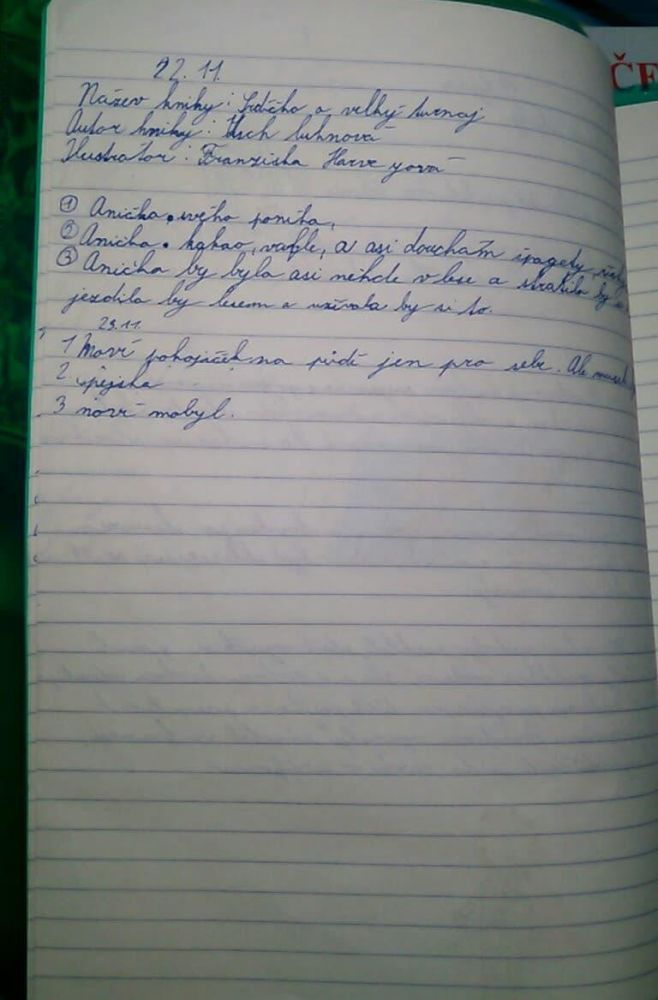 22. 11.
ČE
Název knihy: Srdíčko a velký turnaj
Autor knihy: Usch Luhnová
Ilustrátor: Franziska Harveyová
① Anička. svého poníka,
② Anička. kakao, vafle, a asi doufám špagety,
③ Anička by byla asi někde v lese a ztratila by
jezdila by lesem a užívala by si to.
23.11.
1 Noví pokojíček na půdě jen pro sebe. Ale
2 spejska
3 noví mobyl.